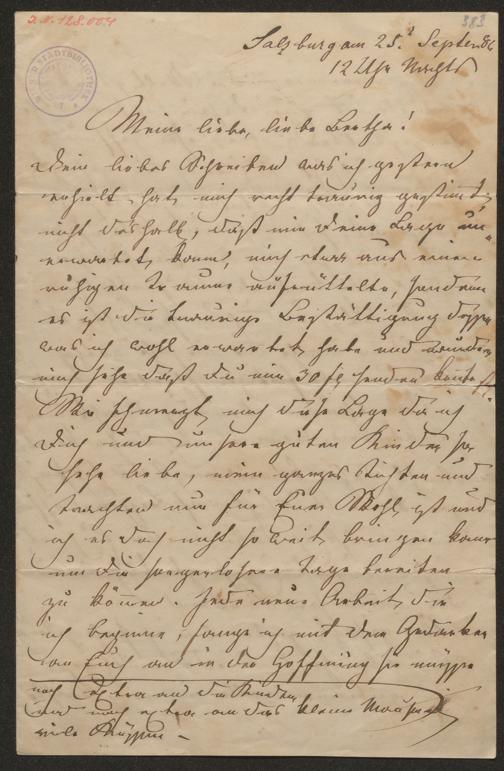 J.N. 128.004
383
Salzburg am 25. Septemb
12 Uhr Nachts
Meine liebe, liebe Bertha!
Dein liebes Schreiben was ich gestern
erhielt hat mich recht traurig gestimmt,
nicht deshalb, daß mir Deine Lage un-
erwartet kam, mich etwa aus einem
ruhigen Traume aufrüttelte, sondern
es ist die traurige Bestättigung dessen
was ich wohl erwartet habe und
mich sehr daß du mir 30 fl senden
schmerzt mich diese Lage da ich
Dich und unsere guten Kinder so
sehr liebe, mein ganzes Tichten und
Trachten nur für Euer Wohl ist und
ich es doch nicht so weit bringen kann
um Dir sorgenlosere Tage bereiten
zu können. Jede neue Arbeit die
ich beginne, fange ich mit dem Gedanken
an Euch an in der Hoffnung sie müsse
noch extra an die Kinder
und noch extra an das kleine
viele Küsse